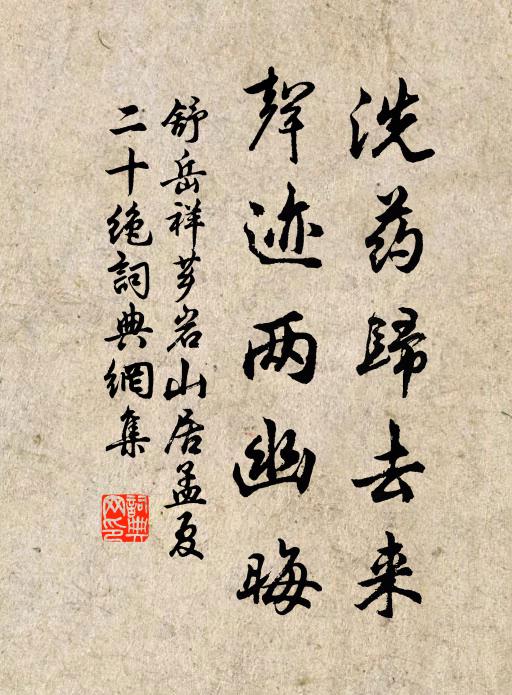 洗药歸去来
聲迹两幽晦
舒岳祥芗岩山居孟夏
二十绝詞典網集
詞典网印